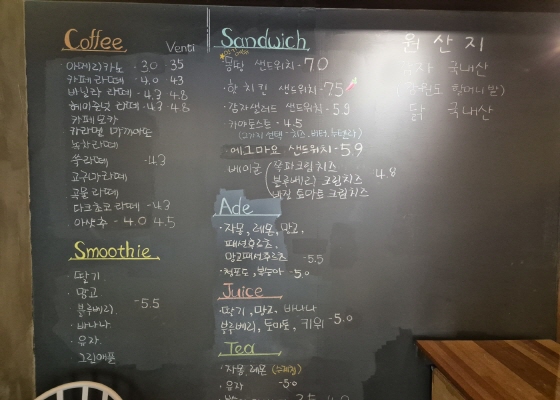 Coffee
Venti
아메리카노 - 3.0 3.5
카페라떼 - 4.0 4.3
바닐라 라떼 - 4.3 4.8
헤이즐넛 라떼 - 4.3 4.8
카페모카
카라멜 마끼아또
녹차라떼
쑥라떼 - 4.3
고구마라떼
곡물라떼
다크초코라떼 - 4.3
아샷추 - 4.0 4.5
Smoothie
· 딸기
· 망고
· 블루베리 - 5.5
· 바나나
· 유자
그린애플
Sandwich
몽땅 샌드위치 - 7.0
· 핫치킨 샌드위치 - 7.5
· 감자샐러드 샌드위치 - 5.9
· 카야토스트 - 4.5
(2가지 선택 - 치즈, 버터, 누텔라)
· 에그마요 샌드위치 - 5.9
베이글 쪽파크림치즈
블루베리 크림치즈 4.8
바질 토마토 크림치즈
Ade
· 자몽, 레몬, 망고,
패션후르츠,
망고패션후르츠 - 5.5
· 청포도, 복숭아 - 5.0
Juice
· 딸기, 망고, 바나나
블루베리, 토마토, 키위 - 5.0
Tea
· 자몽, 레몬 (수제청)
· 유자 - 5.0
원산지
국내산
닭 국내산